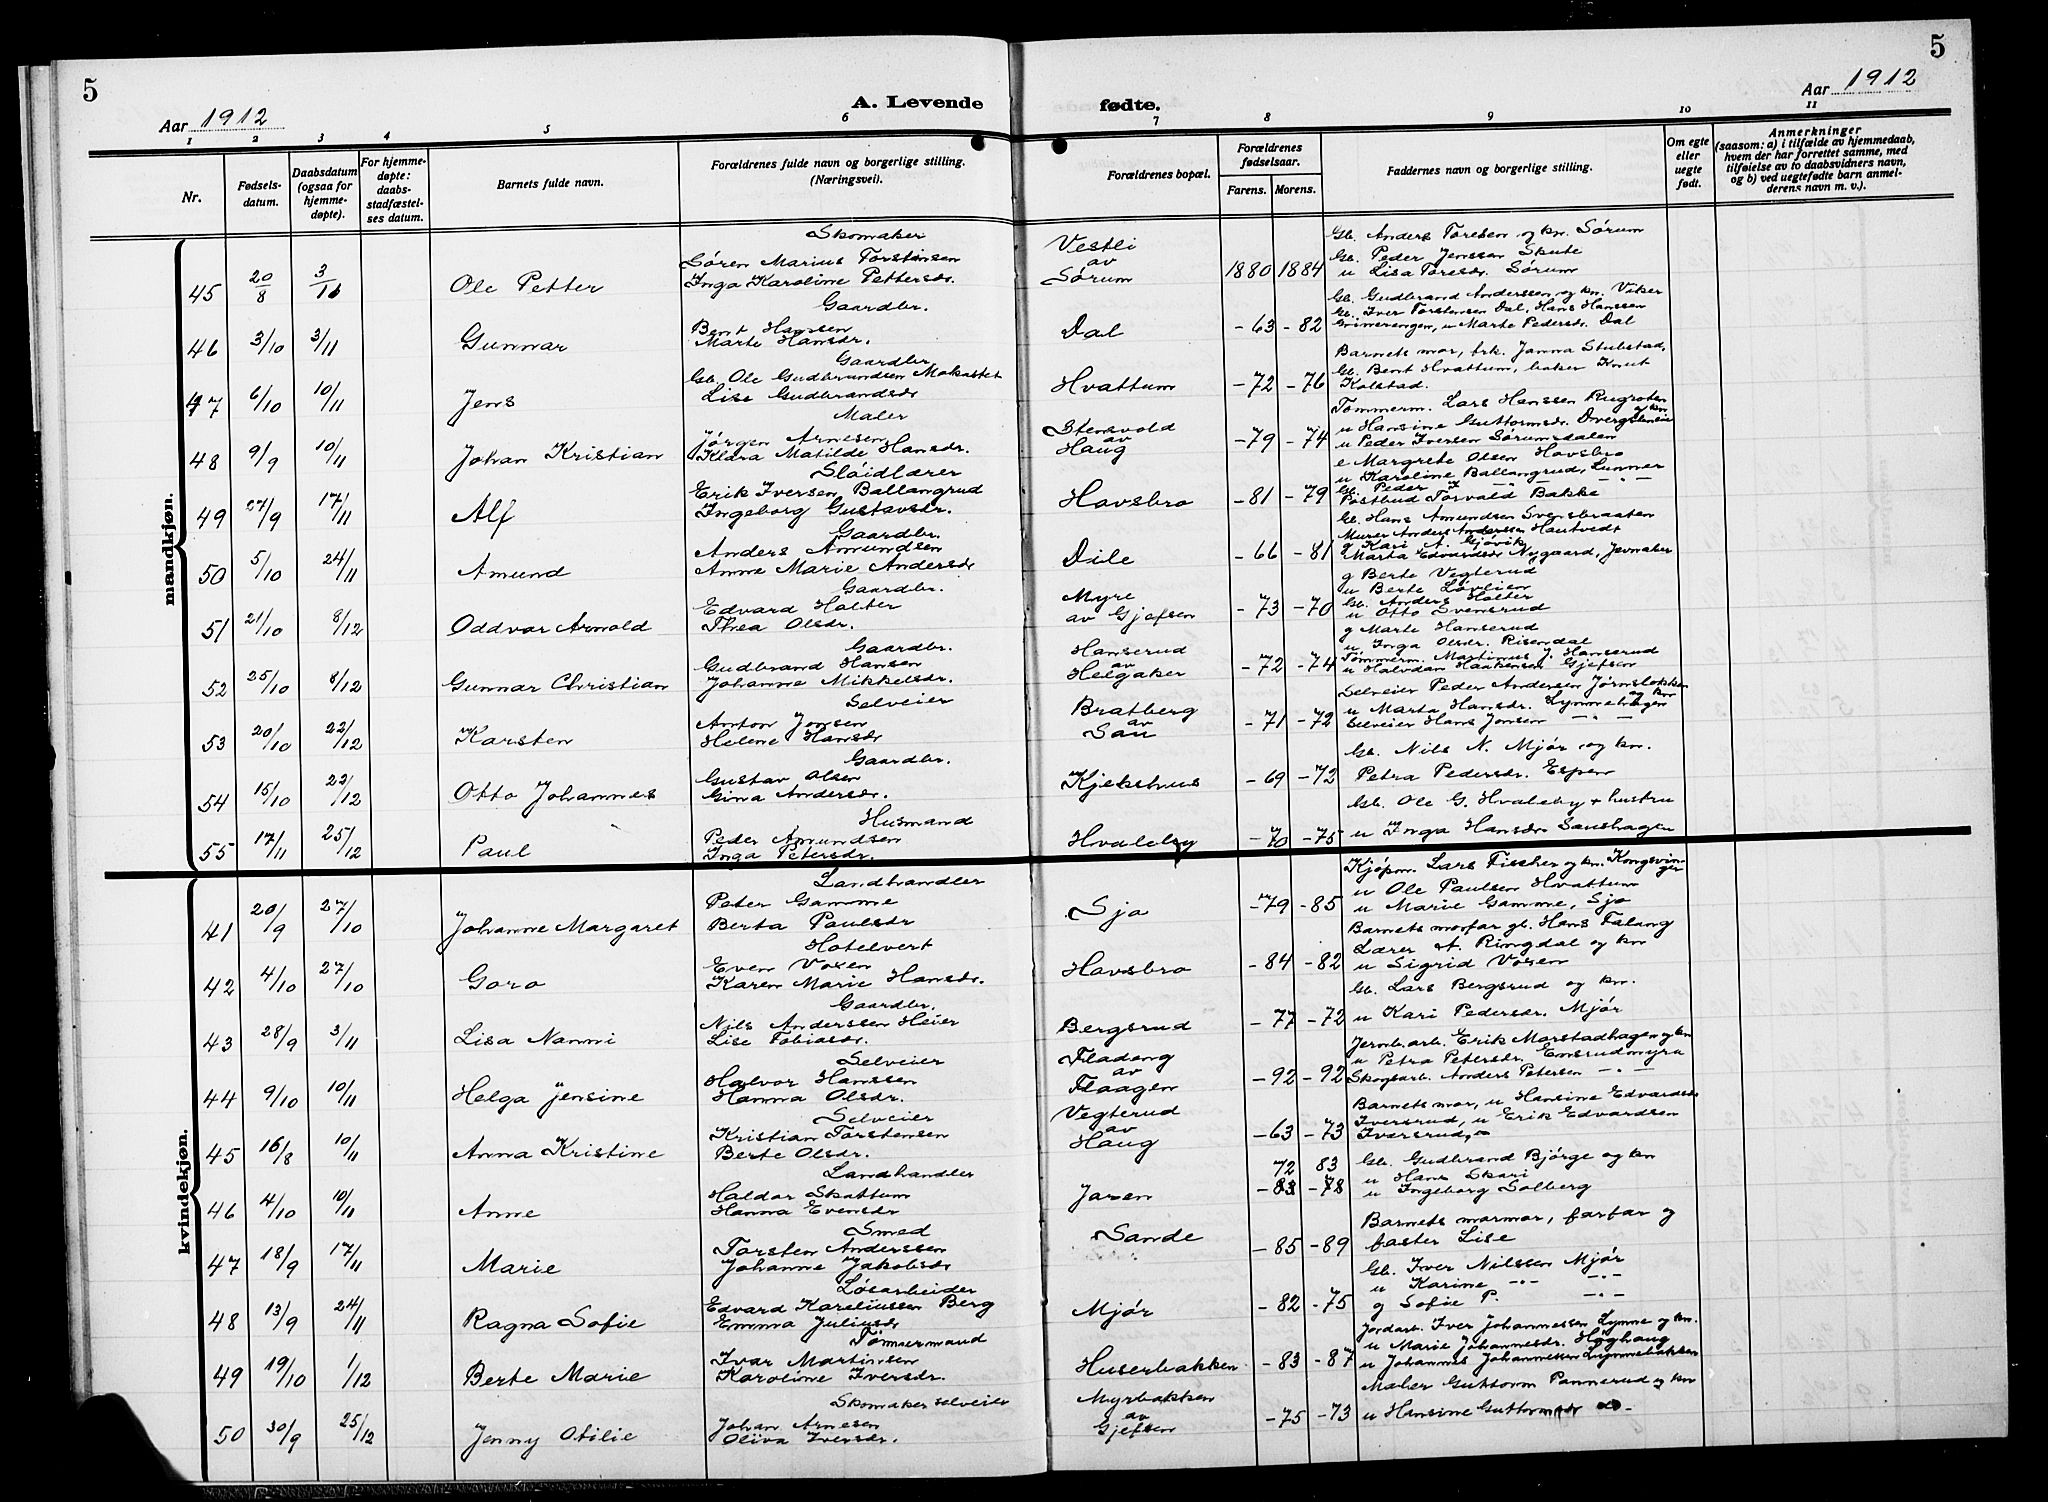 5
5
Aar 1912
A. Levende fødte.
Aar 1912
1 2 3 4 5 6 7 8 9 10 11
Nr.
Fødselsdatum.
Daabsdatum (ogsaa for hjemmedøpte).
For hjemmedøpte: daabsstadfæstelses datum.
Barnets fulde navn.
Forældrenes fulde navn og borgerlige stilling. (Næringsvei).
Forældrenes bopæl.
Forældrenes fødselsaar.
Farens. Morens.
Faddernes navn og borgerlige stilling.
Om egte eller uegte født.
Anmerkninger (saasom: a) i tilfælde av hjemmedaab, hvem der har forrettet samme, med tilføielse av to daabsvidners navn, og b) ved uegtefødte barn anmelderens navn m. v.).
mandkjøn.
45 20/8 3/11 Ole Petter
Skomaker
Søren Marius Torstensen
Inga Karoline Pettersdr.
Vestli
av
Sørum
1880 1884
Gb. Anders Toresen og kn. Sørum
Gb. Peder Jenssen Skute
u Lisa Toresdr. Sørum
46 3/10 3/11 Gunnar
Gaardbr.
Bent Hansen
Marte Hansdr.
Dal
-63 -82
Gb. Gudbrand Anderssen og kn. Viker
Gb. Iver Torstensen Dal, Hans Hanssen
Grinerengen, u Marte Pedersdr. Dal
47 6/10 10/11 Jens
Gaardbr.
Gb. Ole Gudbrandsen Mokastet
Lise Gudbrandsdr
Hvattum
-72 -76
Barnets mor, frk. Janna Stubstad,
Gb. Bent Hvattum, baker Knut
Kolstad.
48 9/9 10/11 Johan Kristian
Maler
Jørgen Arnesen
Klara Matilde Hansdr.
Stensvold
av
Haug
-79 -74
Tømmerm. Lars Hanssen Rugroten
og kn
u Hansine Guttormsdr.
u Peder Iversen Sørumsdalen
49 27/9 17/11 Alf
Sløidlærer
Erik Iversen Ballangrud
Ingeborg Gustavsdr.
Havsbro
-81 -79
e Margrete Olsen Havsbro
u Karoline Ballangrud, Lunner
Gb. Peder I. -"- -"-
Postbud Torvald Bakke
50 5/10 24/11 Amund
Gaardbr.
Anders Amundsen
Anne Marie Andersdr
Dile
-66 -81
Gb. Hans Amundsen Svensbraaten
Murer Anders Anderssen Hautvedt
g Kari A. Gjøvik
Marta Edvardsdr Nygaard, Jevnaker
51 21/10 8/12 Oddvar Arnold
Gaardbr.
Edvard Holter
Thea Olsdr.
Myre
av Gjefsen
-73 -70
g Berte Vegterud
u Berte Løvlien
Gb. Anders Holter
u Otto Svensrud
52 25/10 8/12 Gunnar Christian
Gaardbr.
Gudbrand Hansen
Johanne Mikkelsdr.
Hanserud
av
Helgaker
-72 -74
g Marte Hanserud
u Inga Olsdr. Risendal
Tømmerm. Martinus J. Hanserud
u Halvdan Haakensdr Gjefsen
53 20/10 22/12 Karsten
Selveier
Anton Jonsen
Helene Hansdr
Bratberg
av
San
-71 -72
Selveier Peder Andersen Jørnslokken
og kn
u Marta Hansdr. Lynnehagen
Selveier Hans Jonsen -"-
54 15/10 22/12 Otto Johannes
Gaardbr.
Gustav Olsen
Gina Andersdr.
Kjekshus
-69 -72
Gb. Nils N. Mjør og kn.
Petra Pedersdr. Espen
55 17/11 25/12 Paul
Husmand
Peder Amundsen
Inga Petersdr.
Hvaleby
-70 -75
Gb. Ole G. Hvaleby + hustru
u Inga Hansdr Sanshagen
kvindekjøn.
41 20/9 27/10 Johanne Margaret
Landhandler
Peter Gamme
Berta Paulsdr
Sjo
-79 -85
Kjøpm. Lars Fischer og kn. Kongsvinger
u Ole Paulsen Hvattum
u Marie Gamme, Sjo
42 4/10 27/10 Goro
Hotelvert
Even Voxen
Karen Marie Hansdr.
Havsbro
-84 -82
Barnets morfar gb. Hans Falang
Lærer A. Ringdal og kn
u Sigrid Voxen
43 28/9 3/11 Lisa Nanni
Gaardbr.
Nils Anderssen Heier
Lise Tobiasdr.
Bergsrud
-77 -72
Gb. Lars Bergsrud og kn.
u Kari Pedersdr. Mjør
44 9/10 10/11 Helga Jensine
Selveier
Halvor Hanssen
Hanna Olsdr.
Fladeng
av
Flaagen
-92 -92
Jernb.arb. Erik Morstadhagen og kn
u Petra Petersdr. Emsrudmyra
Skogsarb. Anders Petersen -"-
45 16/8 10/11 Anna Kristine
Selveier
Kristian Torstensen
Berte Olsdr.
Vegterud
av
Haug
-63 -73
Barnets mor, u Hansine Edvardsdr
Iversrud, u Erik Edvardsen
Iversrud
46 4/10 10/11 Anne
Landhandler
Haldor Skattum
Hanna Evensdr
Jaren
72 83
-83 -78
Gb. Gudbrand Bjørge og kn
u Hans Skari
u Ingeborg Solberg
47 18/9 17/11 Marie
Smed
Torsten Anderssen
Johanne Jakobsdr
Sande
-85 -89
Barnets mormor, farfar og
faster Lise
48 13/9 24/11 Ragna Sofie
Løsarbeider
Edvard Kareliussen Berg
Emma Juliusdr
Mjør
-82 -75
Gb. Iver Nilssen Mjør
u Karine -"- -"-
g Sofie P. -"-
49 19/10 1/12 Berte Marie
Tømmermand
Ivar Martinsen
Karoline Iversdr.
Huserbakken
-83 -87
Jordarb. Iver Johannessen Lynne og kn.
u Marie Johannesdr. Høghaug
u Johannes Johannessen Lynnebakken
50 30/9 25/12 Jenny Otilie
Skomaker selveier
Johan Arnesen
Oliva Iversdr.
Myrbakken
av
Gjefsen
-75 -73
Maler Guttorm Pannerud og kn
u Hansine Guttormsdr